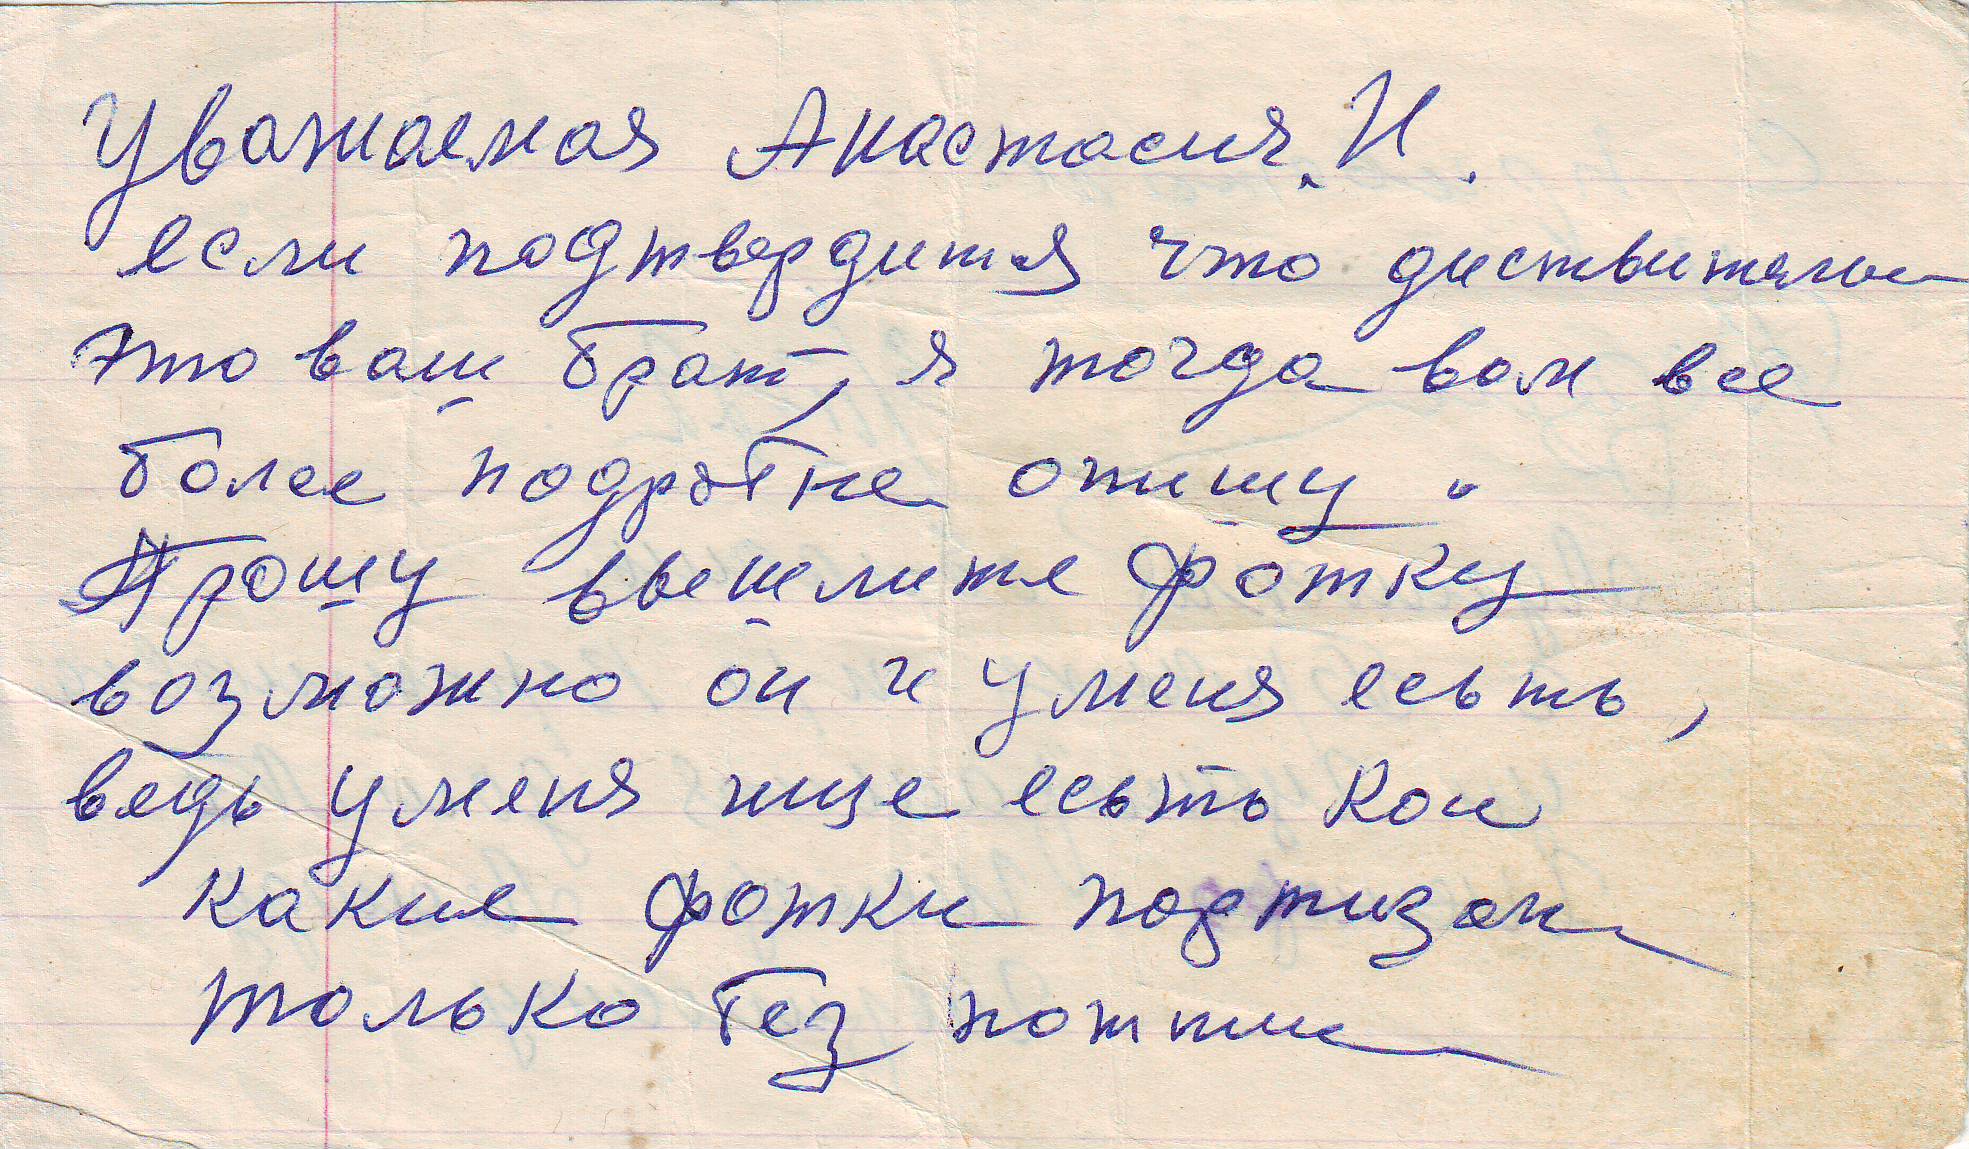 Уважаемая Анастасия. И.
если подтвердится что диствительн
это ваш брат, я тогда вам все
более подробне опишу.
Прошу вышлите фотку
возможно он и у меня есьть,
ведь у меня ище есьть кои
какие фотки партизан
только без